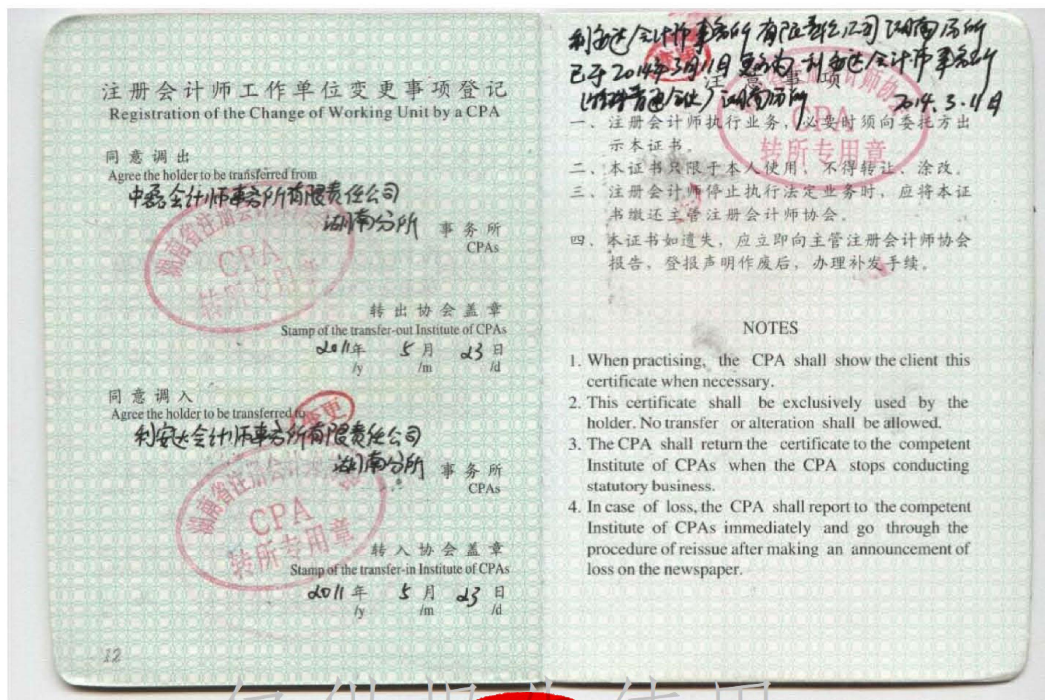 注册会计师工作单位变更事项登记
Registration of the Change of Working Unit by a CPA
同意调出
Agree the holder to be transferred from
中磊会计师事务所有限责任公司
湖南分所 事务所
CPAs
湖南省注册会计师协会
CPA
转所专用章
转出协会盖章
Stamp of the transfer-out Institute of CPAs
2011年 5月 23日
/y /m /d
同意调入
Agree the holder to be transferred to
变更
利安达会计师事务所有限责任公司
湖南分所 事务所
CPAs
湖南省注册会计师协会
CPA
转所专用章
转入协会盖章
Stamp of the transfer-in Institute of CPAs
2011年 5月 23日
/y /m /d
12
利安达会计师事务所有限责任公司湖南分所
已于2014年3月11日更名为利安达会计师事务所
(特殊普通合伙)湖南分所 2014.3.11日
注意事项
CPA
转所专用章
一、注册会计师执行业务,必要时须向委托方出
示本证书。
二、本证书只限于本人使用,不得转让、涂改。
三、注册会计师停止执行法定业务时,应将本证
书缴还主管注册会计师协会。
四、本证书如遗失,应立即向主管注册会计师协会
报告,登报声明作废后,办理补发手续。
NOTES
1. When practising, the CPA shall show the client this
certificate when necessary.
2. This certificate shall be exclusively used by the
holder. No transfer or alteration shall be allowed.
3. The CPA shall return the certificate to the competent
Institute of CPAs when the CPA stops conducting
statutory business.
4. In case of loss, the CPA shall report to the competent
Institute of CPAs immediately and go through the
procedure of reissue after making an announcement of
loss on the newspaper.